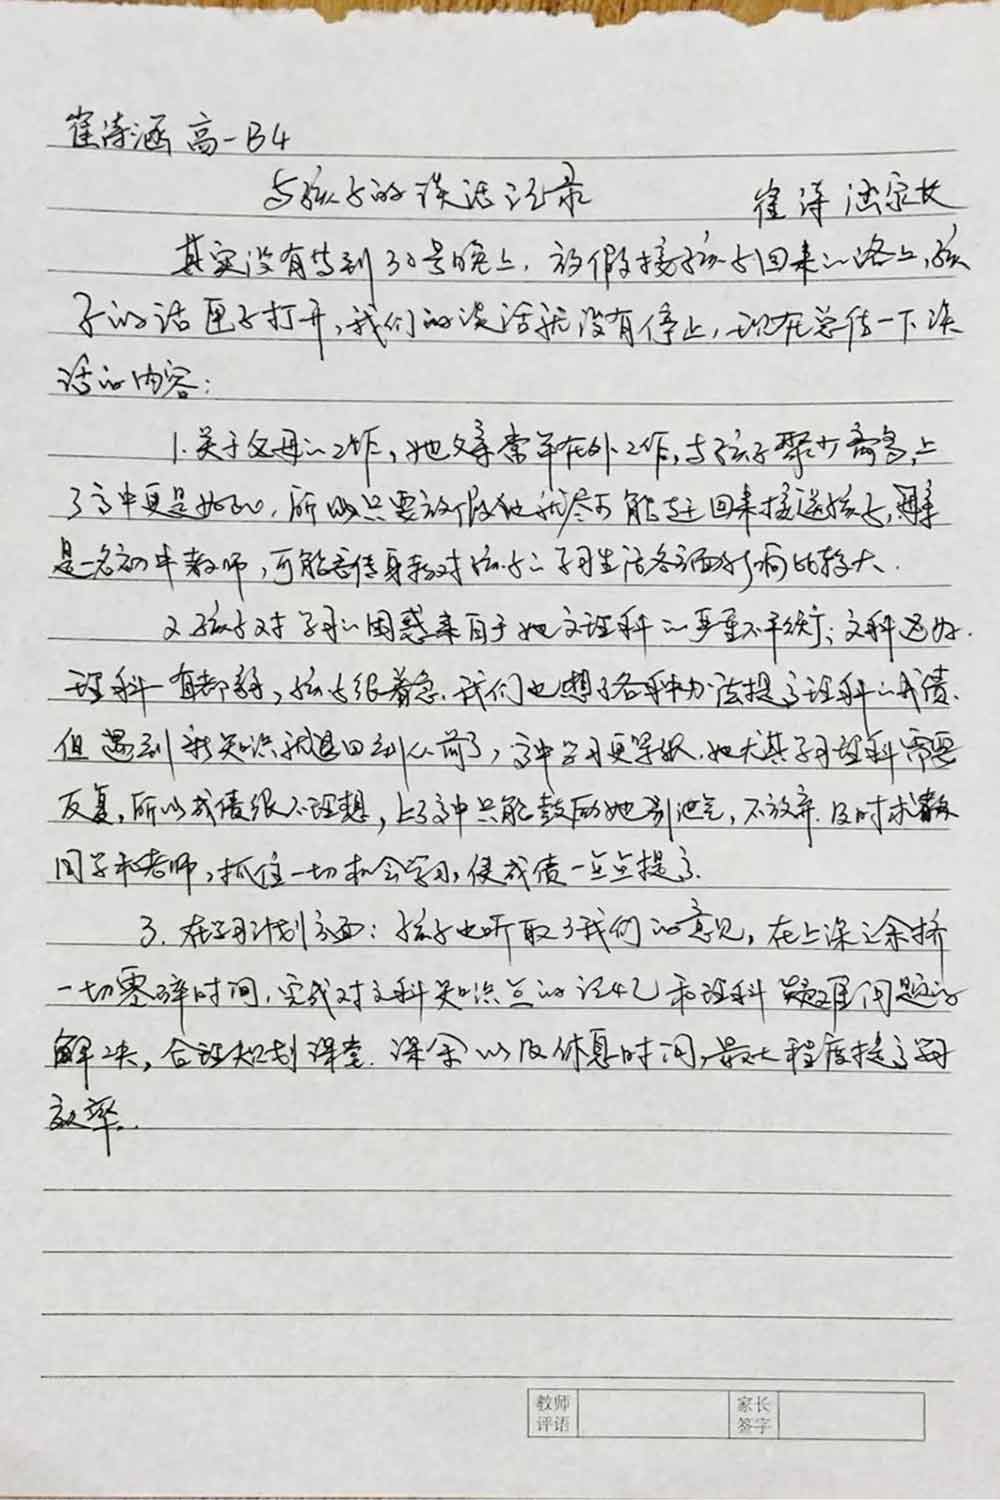 崔诗涵 高一B4
与孩子的谈话记录 崔诗涵家长
其实没有等到30号晚上，放假接孩子回来的路上，孩
子的话匣子打开，我们的谈话就没有停止，现在总结一下谈
话的内容：
1.关于父母的工作，她父亲常年在外工作，与孩子聚少离多，上
了高中更是如此，所以只要放假他就尽可能赶回来接送孩子，
是一名初中教师，可能言传身教对孩子的学习生活各方面影响比较大.
2.孩子对学习的困惑来自于她文理科的严重不平衡；文科还好.
理科一有都弱，孩子很着急.我们也想了各种办法提高理科的成绩.
但遇到新知识就退回到从前了，高中学习更紧张.她尤其学习理科需要
反复，所以成绩很不理想，上了高中只能鼓励她别泄气，不放弃.及时求教
同学和老师，抓住一切机会学习，使成绩一点点提高.
3.在学习计划方面：孩子也听取了我们的意见，在上课之余挤
一切零碎时间，完成对文科知识点的记忆和理科疑难问题的
解决，合理规划课堂.课余以及休息时间，最大程度提高学习
效率.
教师评语 家长签字